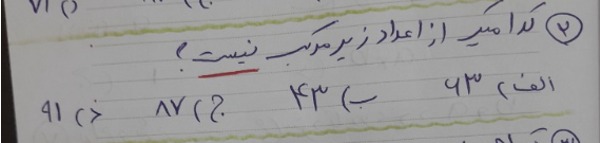 ۲) کدامیک از اعداد زیر مرکب نیست؟
الف) ۶۳ ب) ۴۳ ج) ۸۷ د) ۹۱